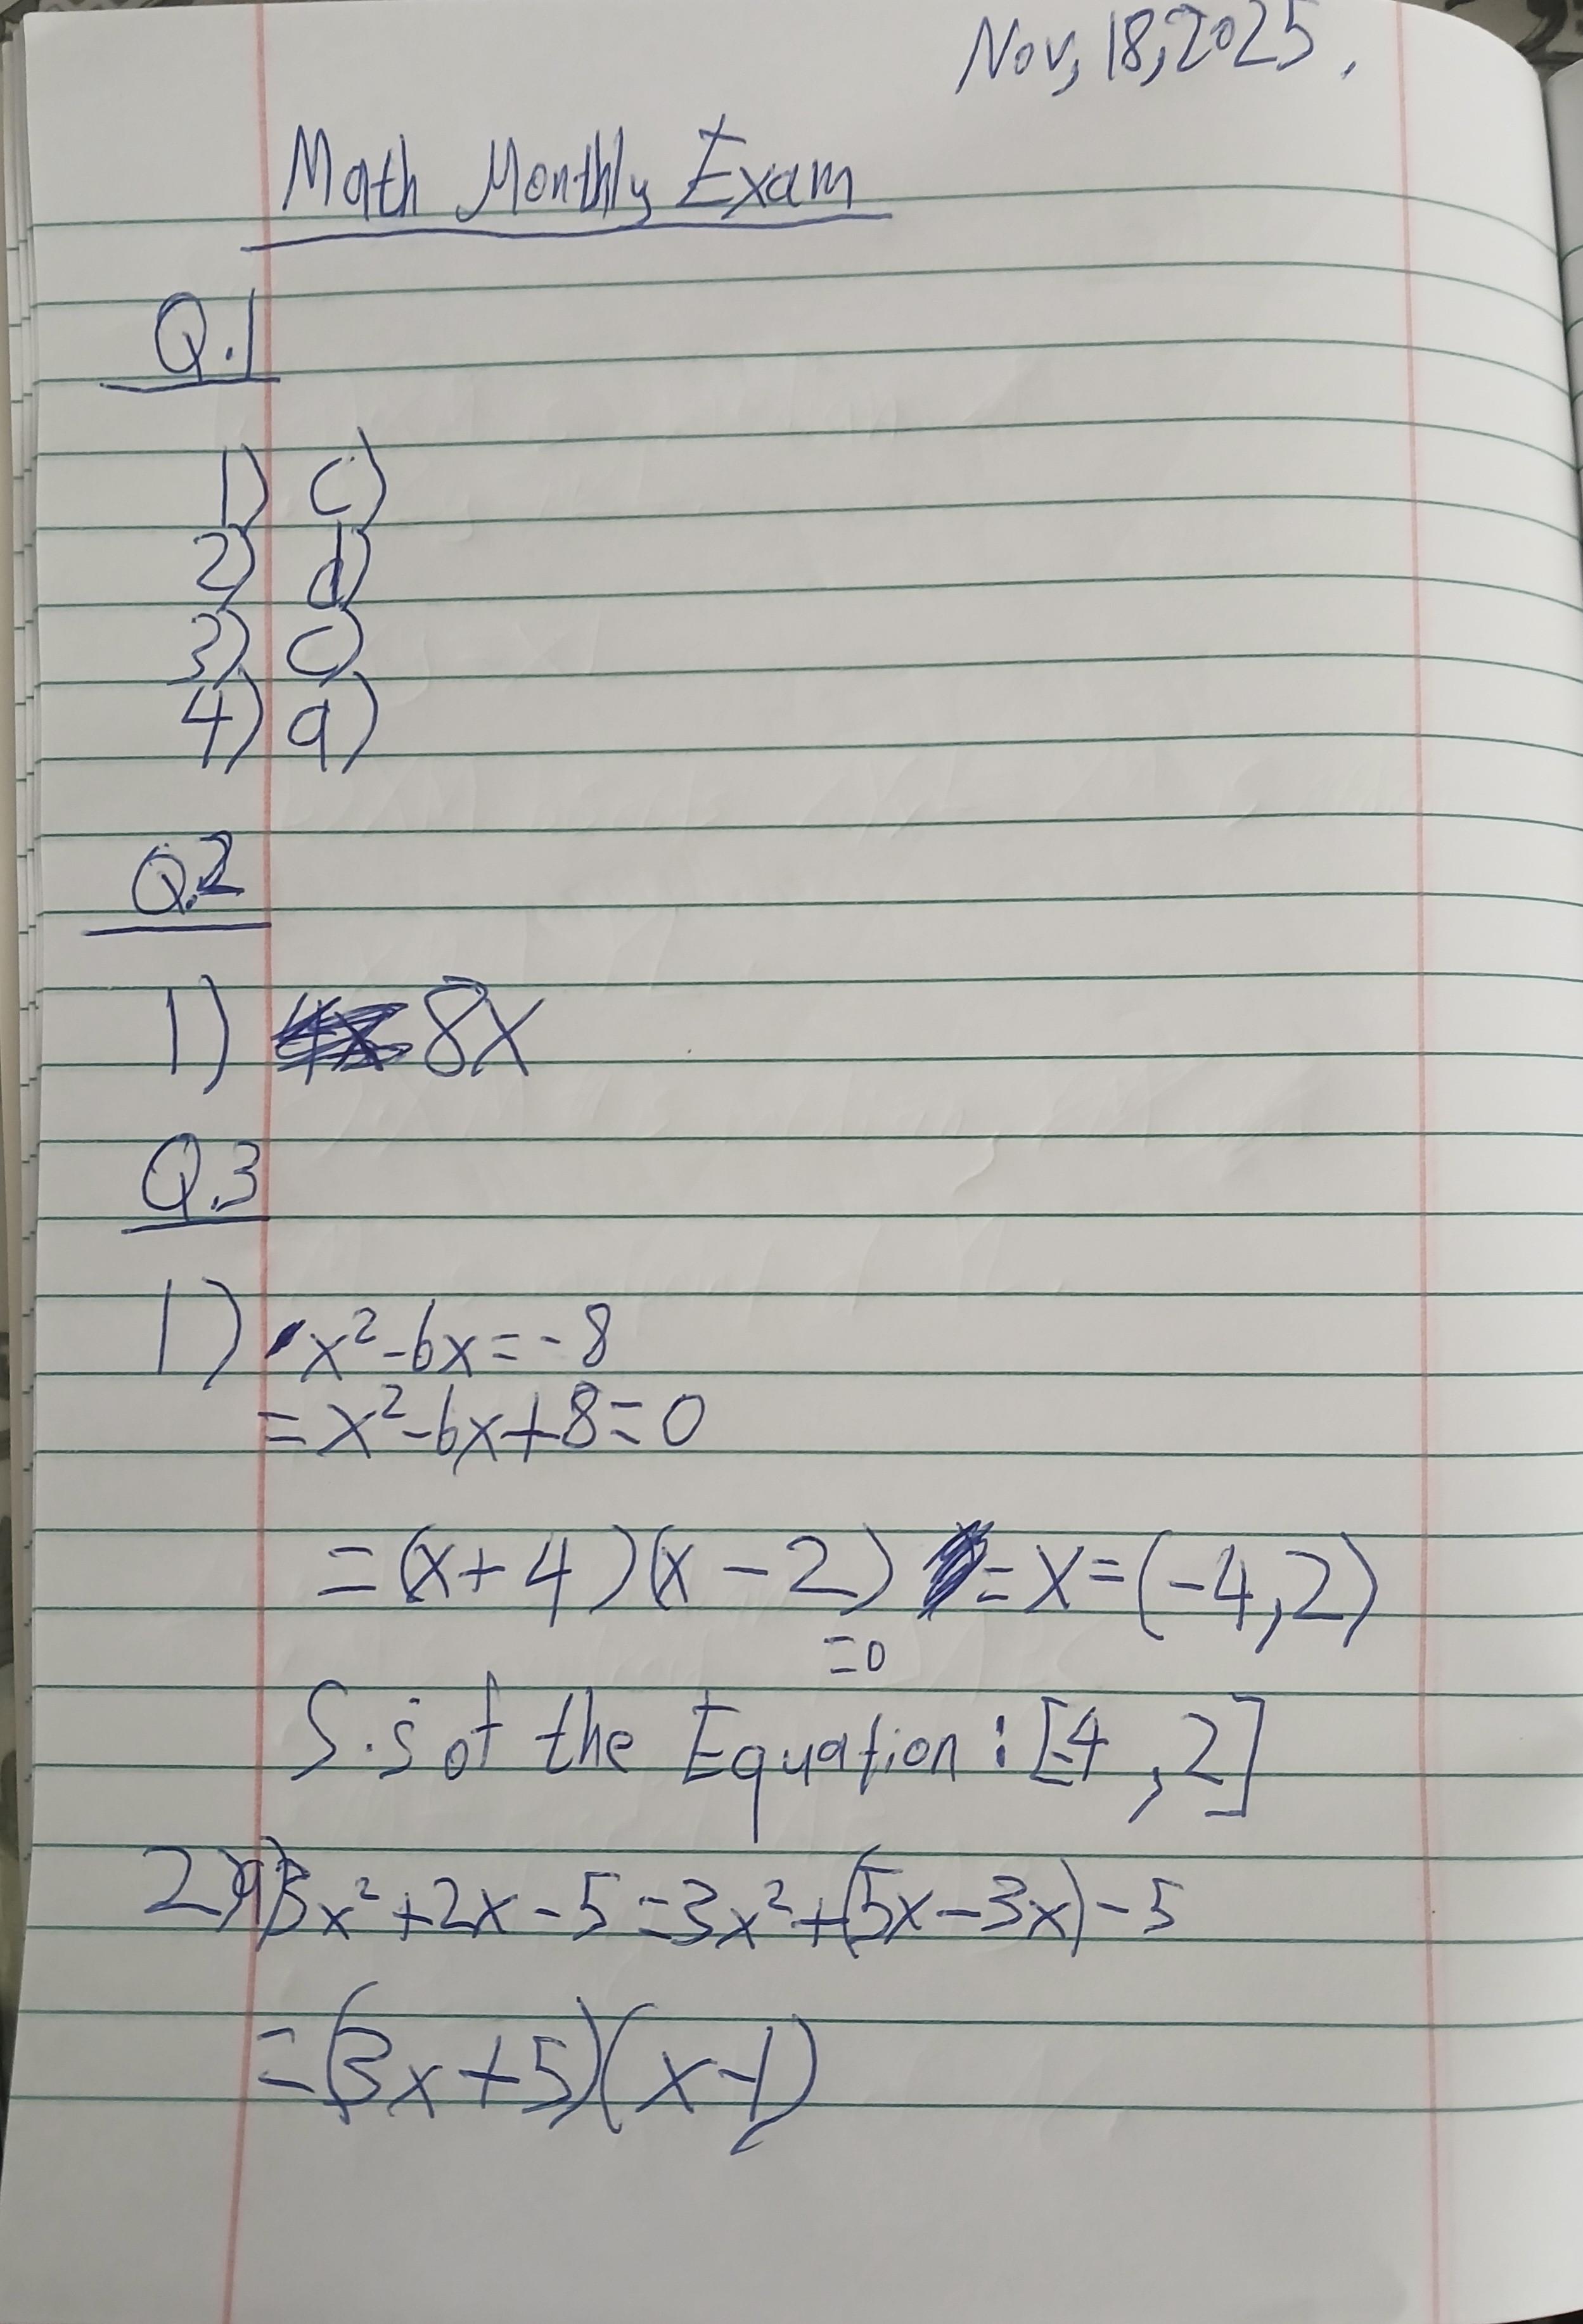 Nov, 18, 2025.
Math Monthly Exam
Q.1
1) c)
2) d)
3) c)
4) a)
Q.2
1) 8x
Q.3
1) x²-6x=-8
=x²-6x+8=0
=(x+4)(x-2) =x=(-4,2)
=0
S.s of the Equation: [-4,2]
2)a)3x²+2x-5=3x²+(5x-3x)-5
=(3x+5)(x-1)